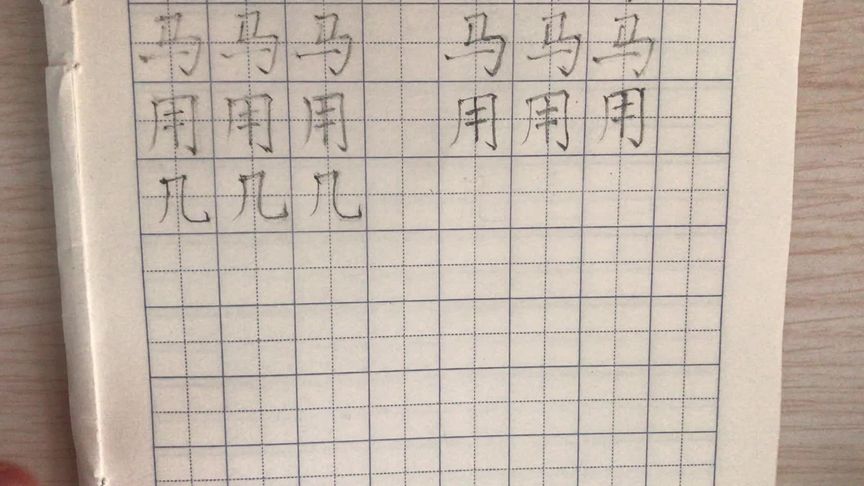 马马马 马马马
用用用 用用用
几几几